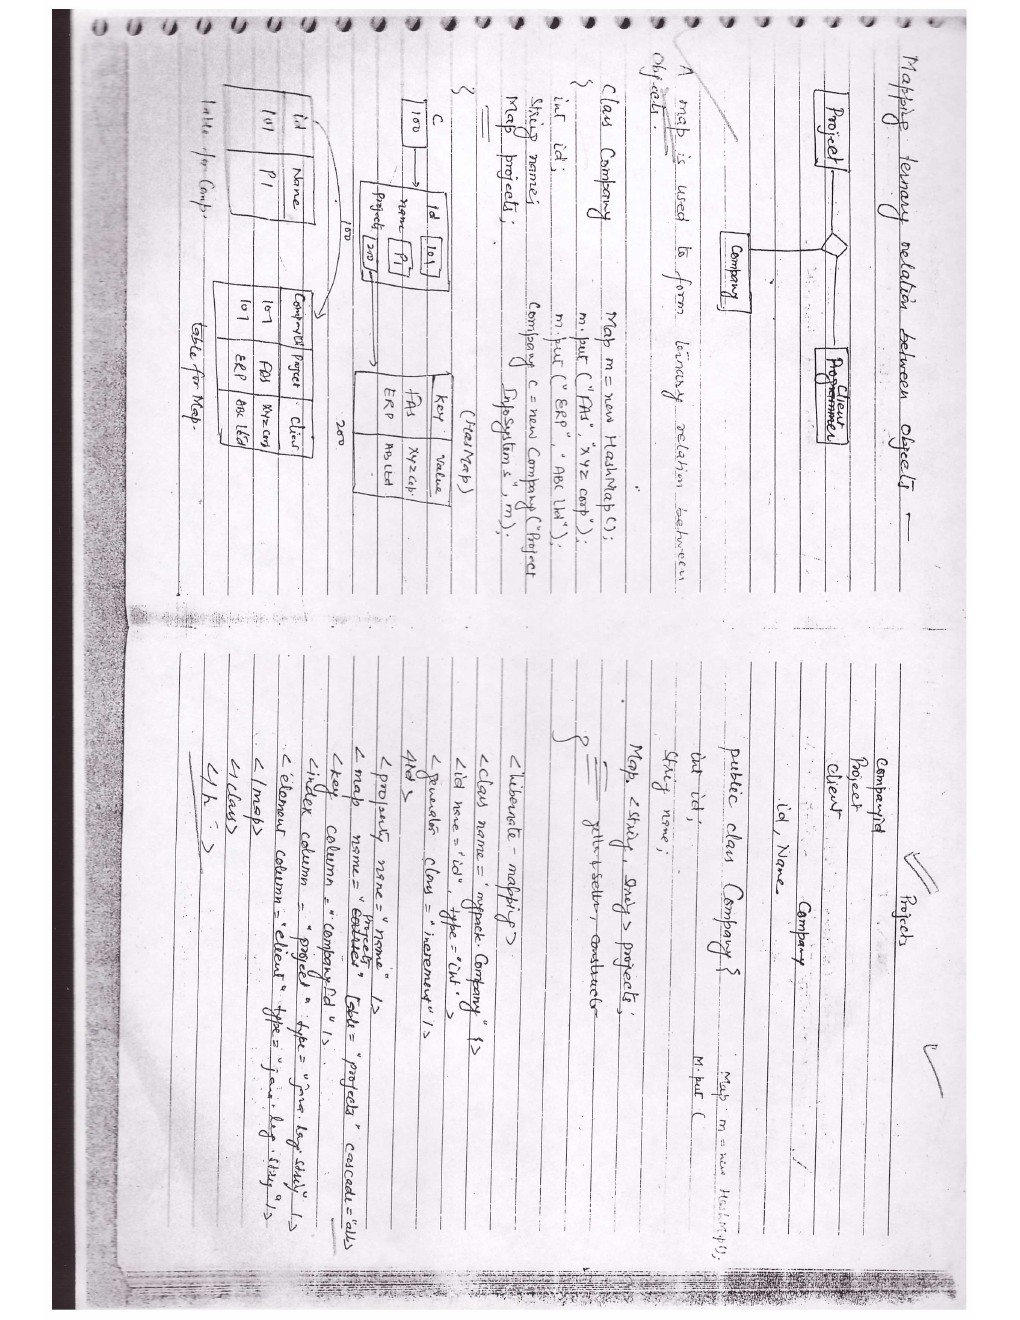 Mapping ternary relation between objects —
Project
Client
Programmer
Company
A map is used to form ternary relation between
Objects.
Class Company
{
int id;
String name;
Map projects;
}
Map m = new HashMap();
m.put ("FAS", "XYZ corp");
m.put ("ERP", "ABC Ltd");
Company c = new Company ("Project
InfoSystems", m);
(HasMap)
C
100
id 101
name P1
projects 200
100
Key Value
FAS XYZ Cop.
ERP AB Ltd
200
id Name
101 P1
table for Comp.
CompanyId Project Client
101 FAS XYZ Corp
101 ERP ABC Ltd
table for Map.
Projects
Companyid
Project
client
Company
id, Name
public class Company {
int id;
String name;
Map <String, String> projects;
getter & setter, constructor
}
Map m = new HashMap();
M.put (
<hibernate-mapping>
<class name="mypack.Company" >
<id name="id", type="int" >
<generator class="increment" />
</id>
<property name="name" />
<map name="Courses Projects" table="projects" cascade="all>
<key column="companyId" />
<index column = "project" type="java.lang.String" />
<element column="client" type="java.lang.String"/>
</map>
</class>
</h >